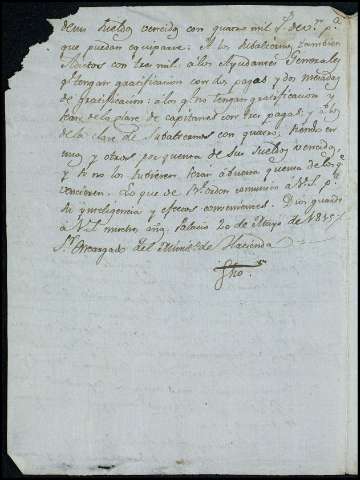 de sus sueldos vencidos con quatro mil r.s de v.n p.a
que puedan equiparse: A los subalternos tambien
Adictos con tres mil: a los Ayudantes Generales
q.e tengan gratificacion con dos pagas y dos mesadas
de gratificacion: a los q.e no tengan gratificacion y
sean de la clase de capitanes con tres pagas; y a los
de la clase de Subalternos con quatro, siendo en
unos y otros por cuenta de sus sueldos vencidos,
y si no los tubieren seran a buena quenta de los q.e
vencieren. Lo que de R.l orden comunico a V.S. p.a
su inteligencia y efectos convenientes. Dios guarde
a V.S. muchos años. Palacio 20 de Mayo de 1815
S.or Encargado del Minist.o de Hacienda